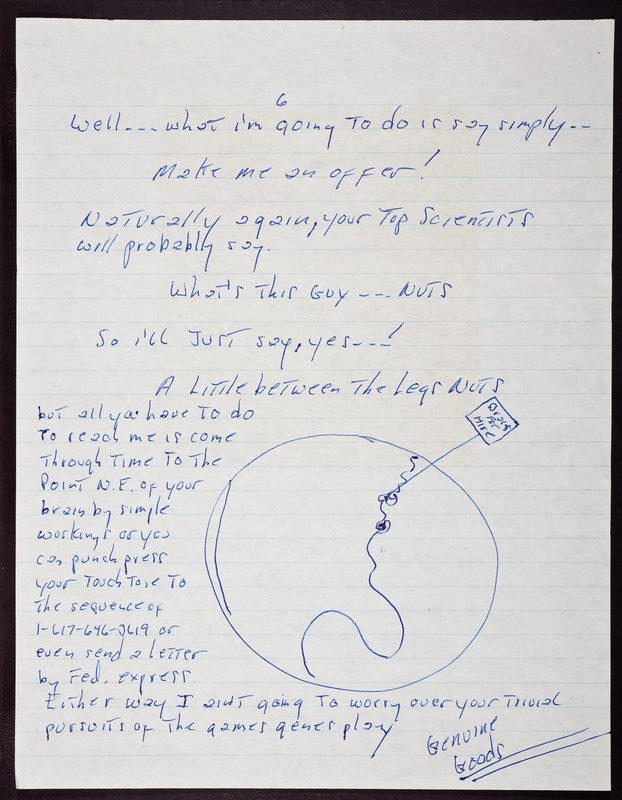 6
Well---what i'm going To do is say simply--
Make me an offer!
Naturally again, your Top Scientists
will probably say.
What's This Guy --- NUTS
So i'll Just say, yes---!
A Little between The Legs NUTS
but all ya have To do
To reach me is come
Through Time To The
Point N.E. of your
brain by simple
workings or you
can punch press
your Touch Tone To
The sequence of
1-617-646-3619 or
even send a letter
by Fed. express.
Either way I aint going To worry over your Trivial
pursuits of The games genes play
Brains
For
Hire
Genuine
Goods